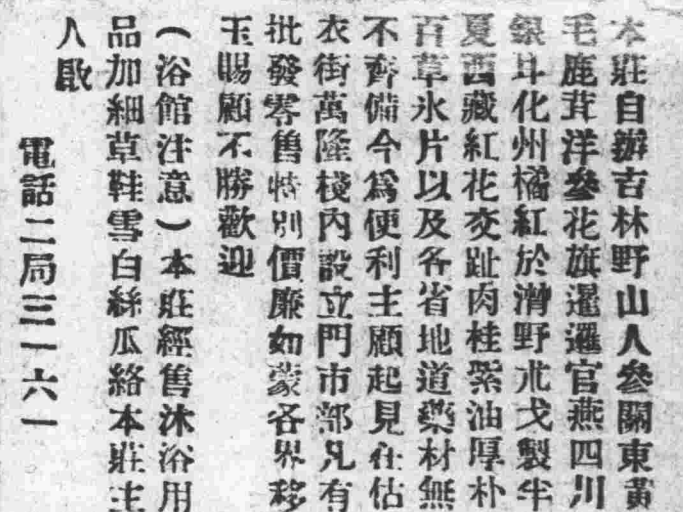 本莊自辦吉林野山人參關東黃
毛鹿茸洋參花旗暹邏官燕四川
銀耳化州橘紅於潛野朮戈製半
夏西藏紅花交趾肉桂紫油厚朴
百草氷片以及各省地道藥材無
不齊備今爲便利主顧起見在估
衣街萬隆棧內設立門市部凡有
批發零售特別價廉如蒙各界移
玉賜顧不勝歡迎
(浴館注意)本莊經售沐浴用
品加細草鞋雪白絲瓜絡本莊主
人啟
電話二局三一六一